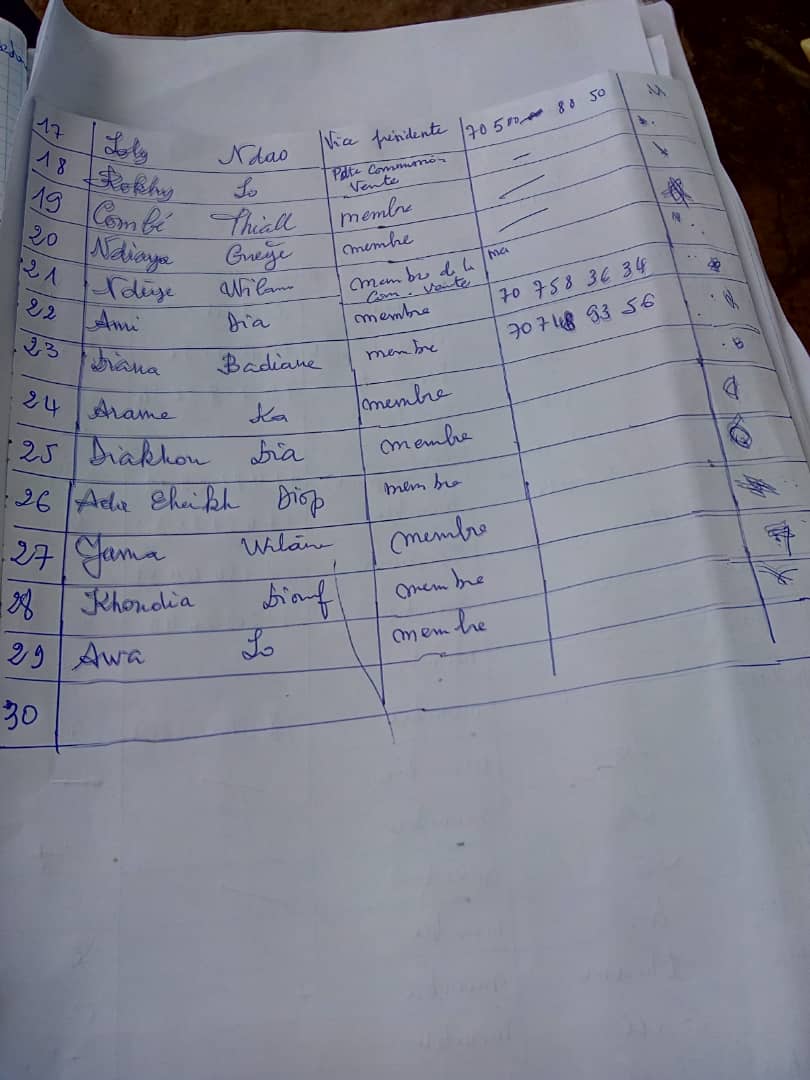 17 Loly Ndao Vice présidente 70 500 80 50
18 Rokhy Lo Pdte Commission Vente
19 Combé Thiall membre
20 Ndiaya Gueye membre
21 Ndèye Wilane membre de la Com. Vente
22 Ami Dia membre 70 758 36 34
23 Diana Badiane membre 70 748 93 56
24 Arame Ka membre
25 Diakhou Dia membre
26 Cheikh Diop membre
27 Yama Wilane membre
28 Khondia Diouf membre
29 Awa Lo membre
30